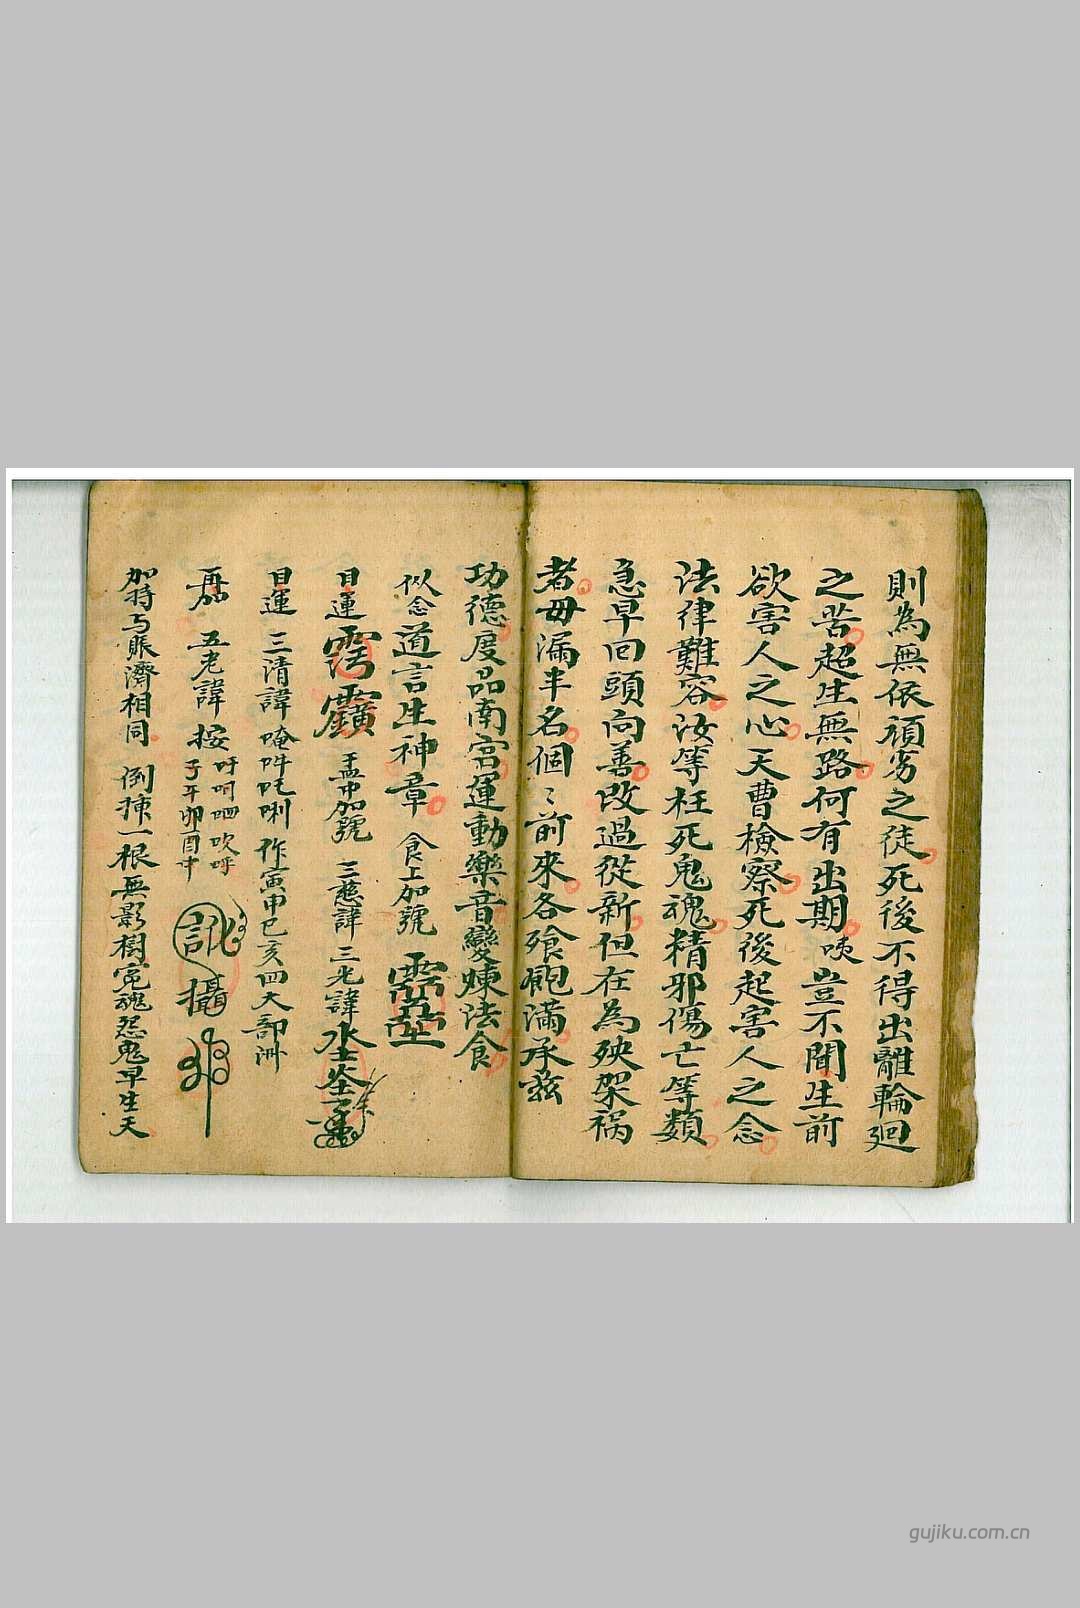 則為無依頑劣之徒死後不得出離輪廻
之苦超生無路何有出期咦豈不聞生前
欲害人之心天曹檢察死後起害人之念
法律難容汝等枉死鬼魂精邪傷亡等類
急早回頭向善改過從新但在為殃架禍
者毋漏半名個〻前來各飱飽滿承兹
功德度品南宮運動樂音變煉法食
似念道言生神章 食上加號
目運 盂中加號 三慈諱 三光諱
日運 三清諱 唵吽吒唎 作寅申巳亥四大部洲
再加 五老諱 按吁呵呬吹呼
子午卯酉中
攝
加持与賑濟相同 倒揀一根無影樹寃魂怨鬼早生天
gujiku.com.cn